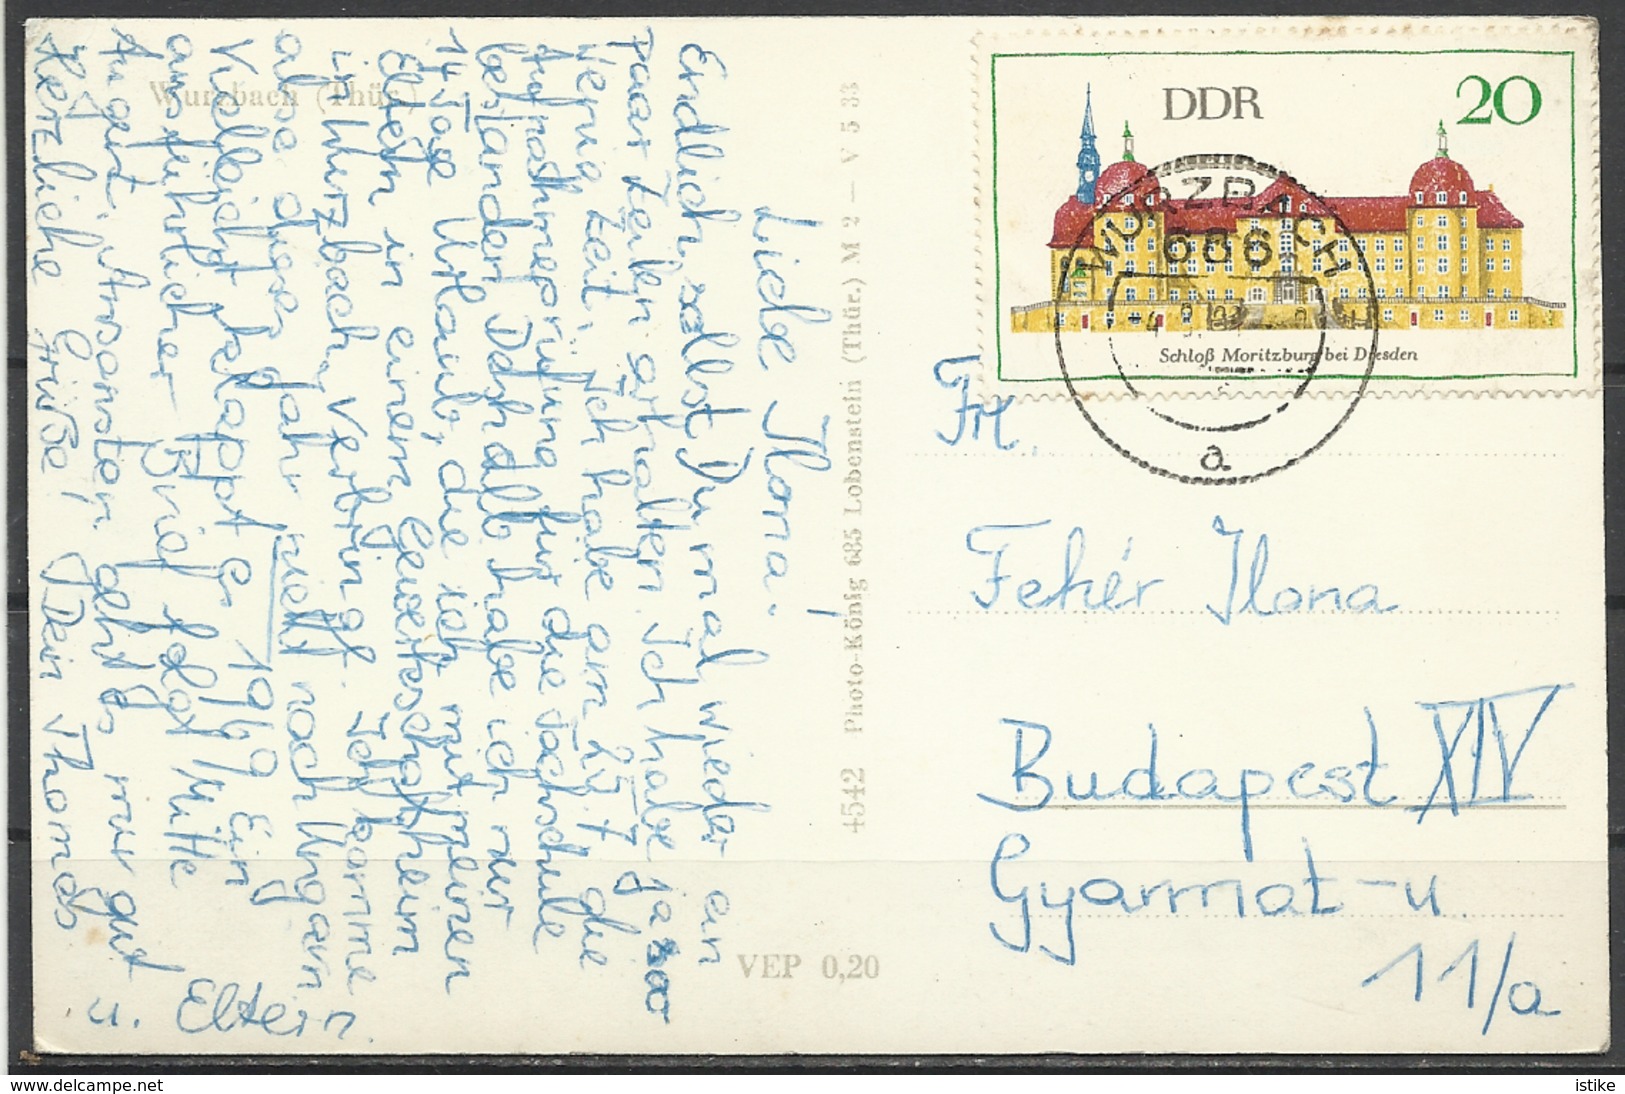 Wurzbach (Thür.)
Liebe Ilona!
Endlich sollst Du mal wieder ein
paar Zeilen erhalten. Ich habe ja so
wenig Zeit. Ich habe am 25.7. die
Aufnahmeprüfung für die Fachschule
bestanden. Deshalb habe ich nur
14 Tage Urlaub, die ich mit meinen
Eltern in einem Gewerkschaftsheim
in Wurzbach verbringe. Ich komme
also dieses Jahr nicht noch Ungarn
Vielleicht klappt es 1969. Ein
ausführlicher Brief folgt Mitte
August. Ansonsten geht es mir gut
Herzliche Grüße! Dein Thomas
u. Eltern.
4542 Photo-König 685 Lobenstein (Thür.) M 2 — V 5 33
VEP 0,20
DDR
20
Schloß Moritzburg bei Dresden
WURZBACH
686
a
Frl.
Fehér Ilona
Budapest XIV
Gyarmat-u.
11/a
www.delcampe.net
istike